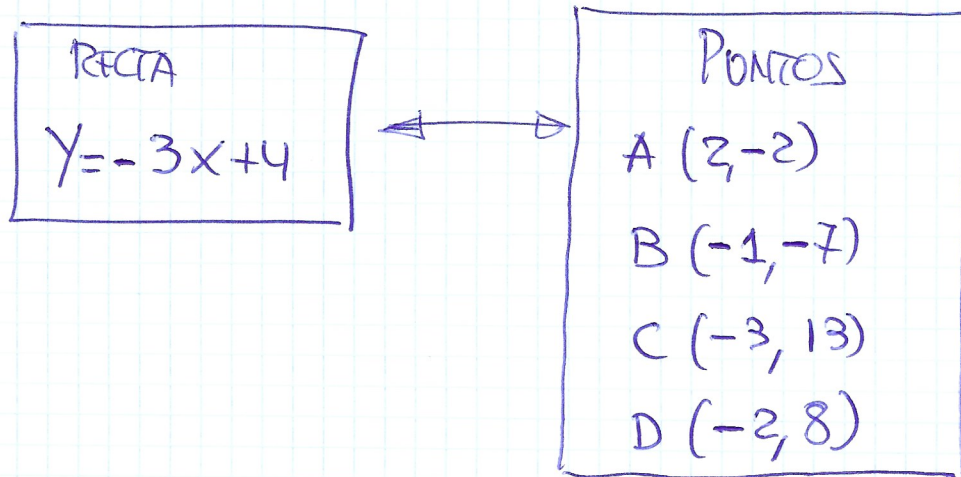 RECTA
Y=-3x+4
PONTOS
A (2,-2)
B (-1,-7)
C (-3, 13)
D (-2,8)